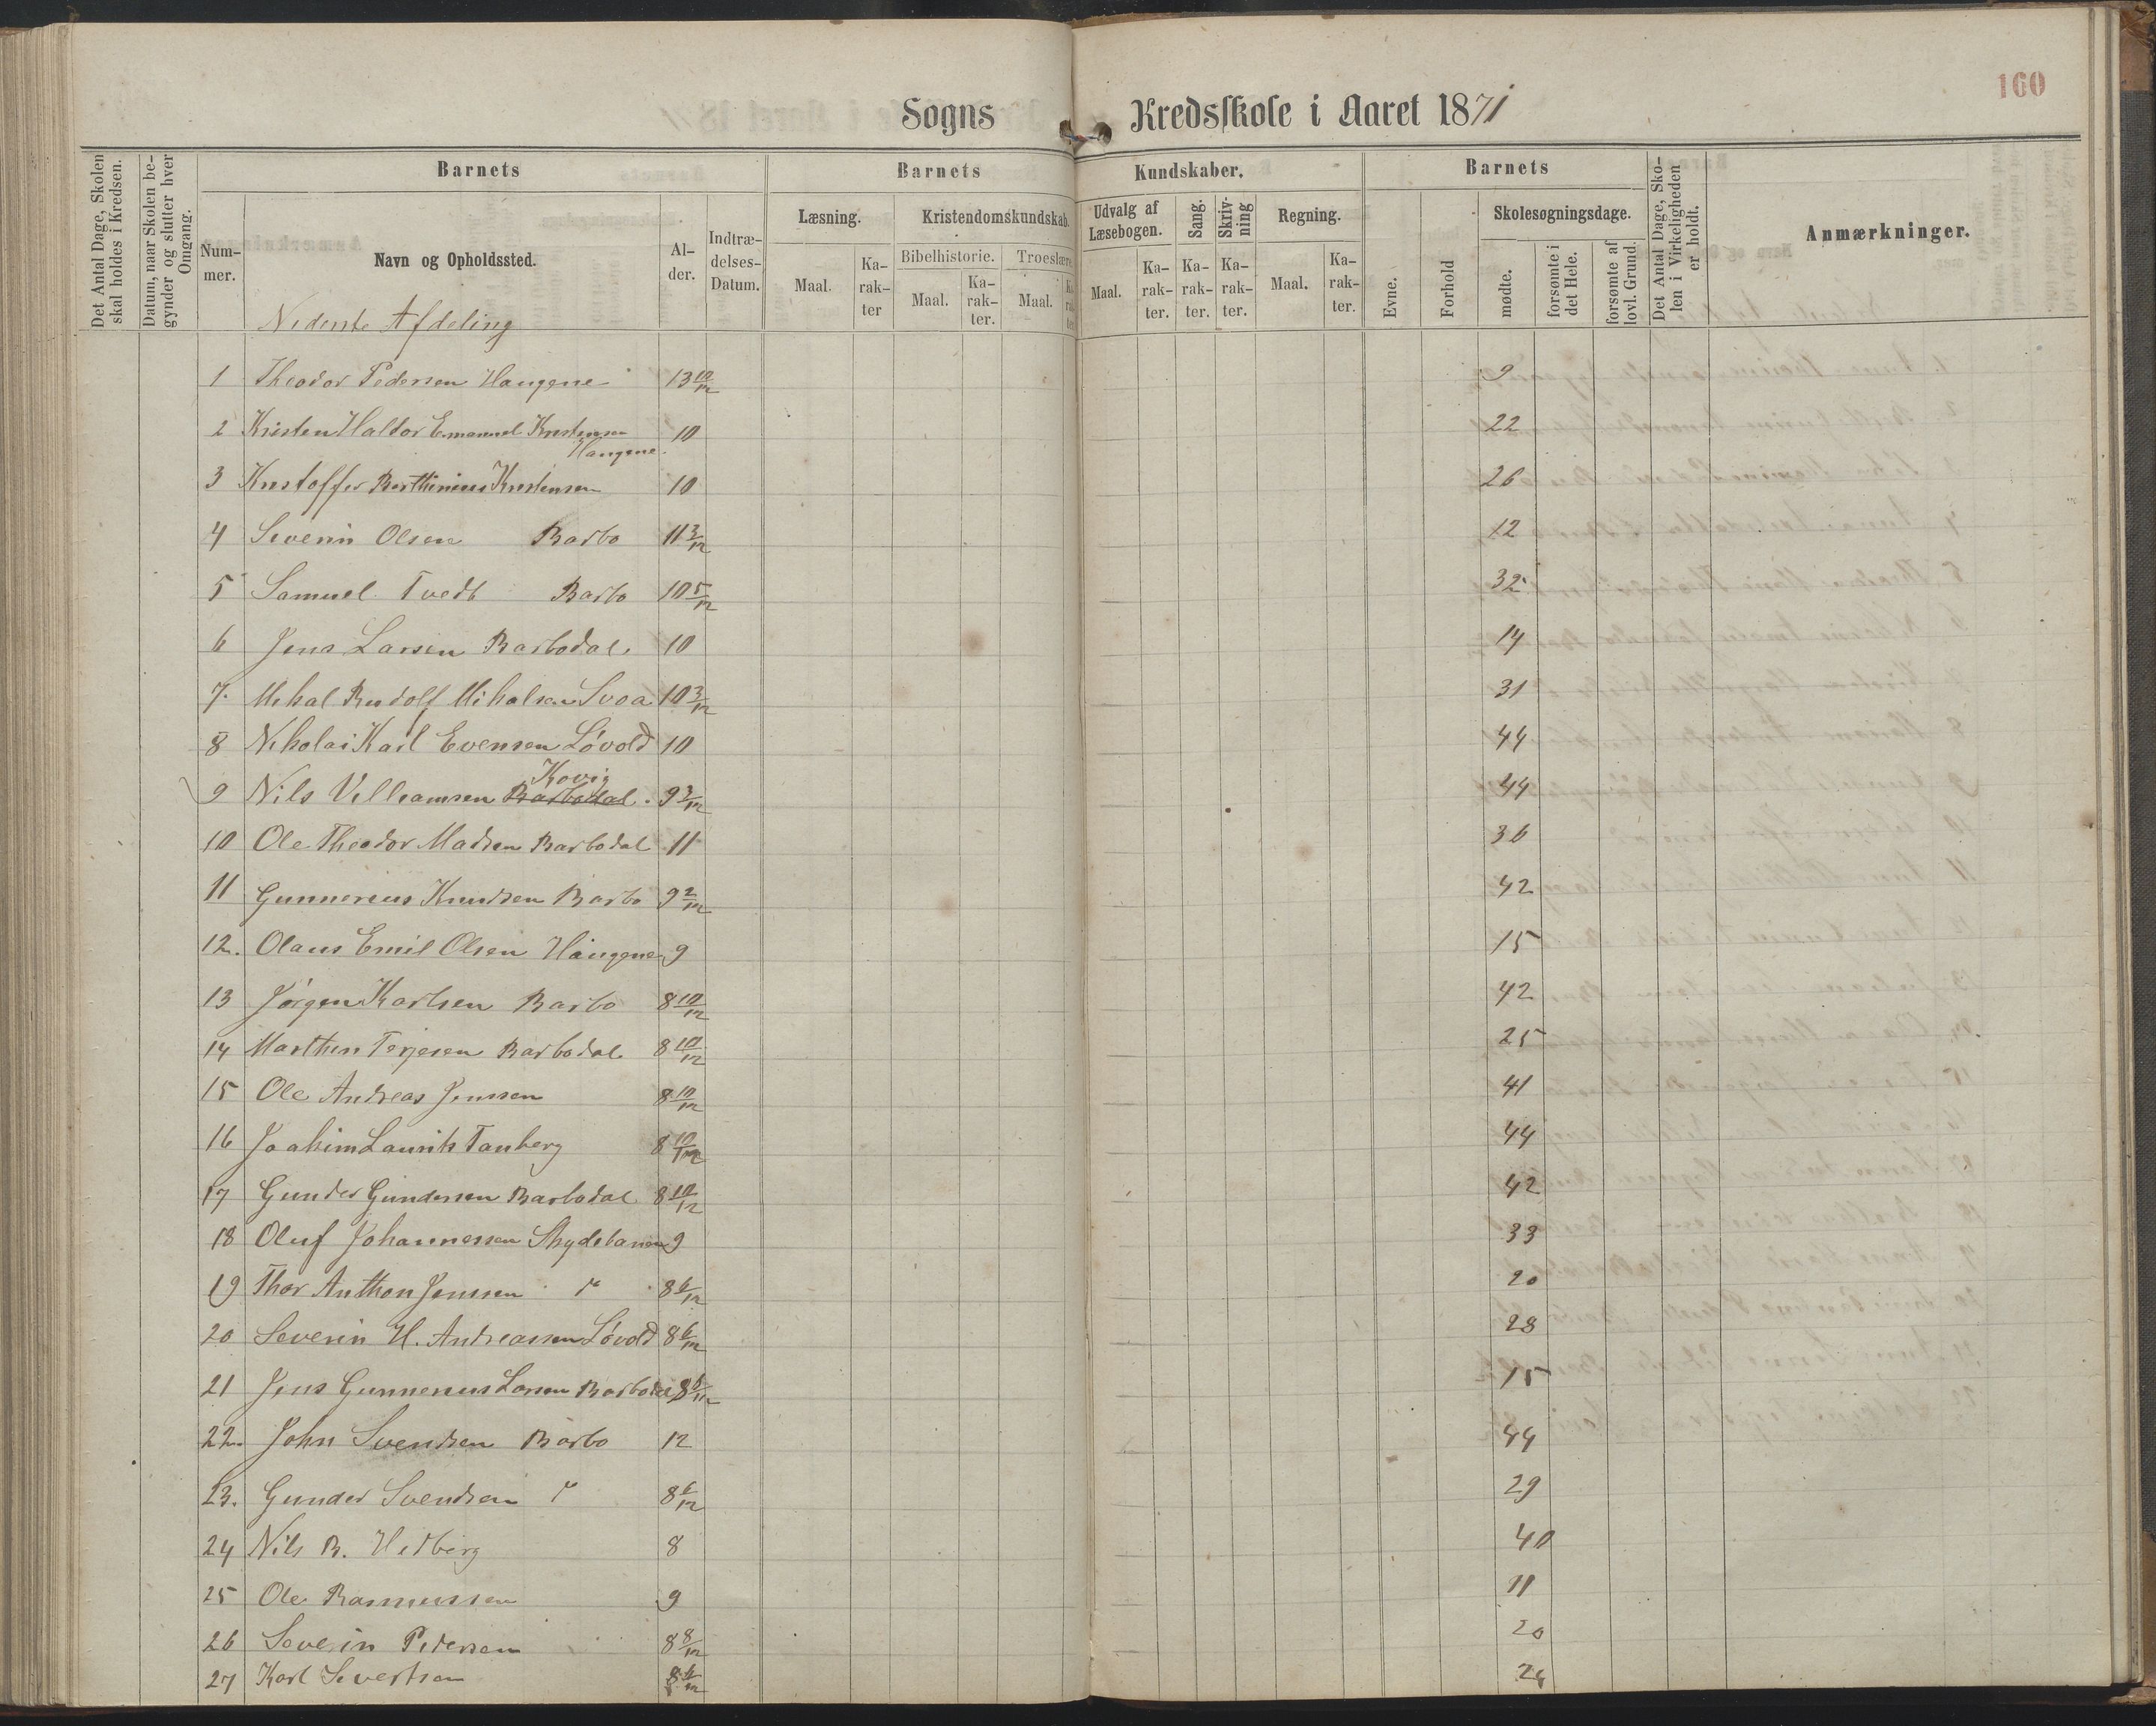 160
Sogns Kredsskole i Aaret 1871
Det Antal Dage, Skolen skal holdes i Kredsen.
Datum, naar Skolen begynder og slutter hver Omgang.
Barnets
Nummer.
Navn og Opholdssted.
Alder.
Indtrædelses-Datum.
Barnets Kundskaber.
Læsning.
Maal.
Karakter
Kristendomskundskab.
Bibelhistorie.
Maal.
Karakter.
Troeslære
Maal.
Udvalg af Læsebogen.
Maal.
Karakter.
Sang.
Karakter.
Skrivning
Karakter.
Regning.
Maal.
Karakter.
Barnets
Evne.
Forhold
Skolesøgningsdage.
mødte.
forsømte i det Hele.
forsømte af lovl. Grund.
Det Antal Dage, Skolen i Virkeligheden er holdt.
Anmærkninger.
Nederste Afdeling
1 Theodor Pedersen Haugene 13 10/12 9
2 Kristen Haldor Emanuel Kristensen Haugene. 10 22
3 Kristoffer Berthinius Kristensen 10 26
4 Severin Olsen Barbo 11 3/12 12
5 Samuel Tvedt Barbo 10 5/12 32
6 Jens Larsen Barbodal. 10 14
7. Mikal Rudolf Mikalsen Svoa 10 3/12 31
8 Nikolai Karl Evensen Lövold 10 44
9 Nils Villiamsen Barbodal Kovig . 9 3/12 44
10 Ole Theodor Madsen Barbodal 11 36
11 Gunnerius Knudsen Barbo 9 2/12 42
12. Olaus Emil Olsen Haugene 9 15
13 Jörgen Karlsen Barbo 8 10/12 42
14 Marthin Terjesen Barbodal 8 10/12 25
15 Ole Andreas Jenssen 8 10/12 41
16 Joakim Laurits Tanberg 8 10/12 44
17 Gunder Gundersen Barbodal 8 10/12 42
18 Oluf Johannessen Skydebanen 9 33
19 Thor Anthon Jenssen " 8 6/12 20
20 Severin H. Andreassen Lövold 8 6/12 28
21 Jens Gunnerius Larsen Barbodal 8 6/12 15
22. John Svendsen Barbo 12 44
23. Gunder Svendsen " 8 6/12 29
24 Nils B. Hedberg 8 40
25 Ole Rasmussen 9 11
26 Severin Pedersen 8 8/12 20
27 Karl Sivertsen 8 6/12